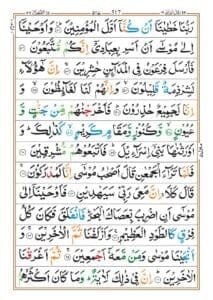 رَبُّنَا خَطٰيٰنَاۤ اَنْ كُنَّاۤ اَوَّلَ الْمُؤْمِنِيْنَ وَاَوْحَيْنَاۤ
اِلٰى مُوْسٰۤى اَنْ اَسْرِ بِعِبَادِيْۤ اِنَّكُمْ مُّتَّبَعُوْنَ
فَاَرْسَلَ فِرْعَوْنُ فِي الْمَدَاۤئِنِ حٰشِرِيْنَ اِنَّ هٰۤؤُلَاۤءِ
لَشِرْذِمَةٌ قَلِيْلُوْنَ وَاِنَّهُمْ لَنَا لَغَاۤئِظُوْنَ وَ
اِنَّا لَجَمِيْعٌ حٰذِرُوْنَ فَاَخْرَجْنٰهُمْ مِّنْ جَنّٰتٍ وَّ
عُيُوْنٍ وَّكُنُوْزٍ وَّمَقَامٍ كَرِيْمٍ كَذٰلِكَ وَ
اَوْرَثْنٰهَا بَنِيْۤ اِسْرَاۤءِيْلَ فَاَتْبَعُوْهُمْ مُّشْرِقِيْنَ
فَلَمَّا تَرَاۤءَ الْجَمْعٰنِ قَالَ اَصْحٰبُ مُوْسٰۤى اِنَّا لَمُدْرَكُوْنَ
قَالَ كَلَّا اِنَّ مَعِيَ رَبِّيْ سَيَهْدِيْنِ فَاَوْحَيْنَاۤ اِلٰى
مُوْسٰۤى اَنِ اضْرِبْ بِّعَصَاكَ الْبَحْرَ فَانْفَلَقَ فَكَانَ كُلُّ
فِرْقٍ كَالطَّوْدِ الْعَظِيْمِ وَاَزْلَفْنَا ثَمَّ الْاٰخَرِيْنَ وَ
اَنْجَيْنَا مُوْسٰى وَمَنْ مَّعَهٗۤ اَجْمَعِيْنَ ثُمَّ اَغْرَقْنَا
الْاٰخَرِيْنَ اِنَّ فِيْ ذٰلِكَ لَاٰيَةً وَمَا كَانَ اَكْثَرُهُمْ